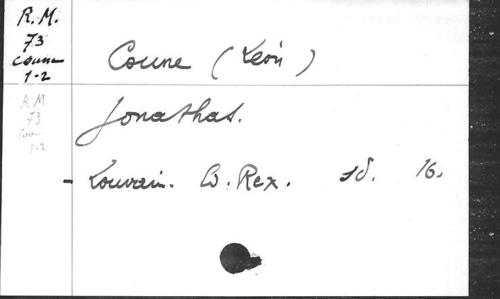 R.M.
73
Coune
1-2
Coune (Léon)
R M
73
Cou
1-2
Jonathas.
- Louvain. Ed. Rex. sd. 16.